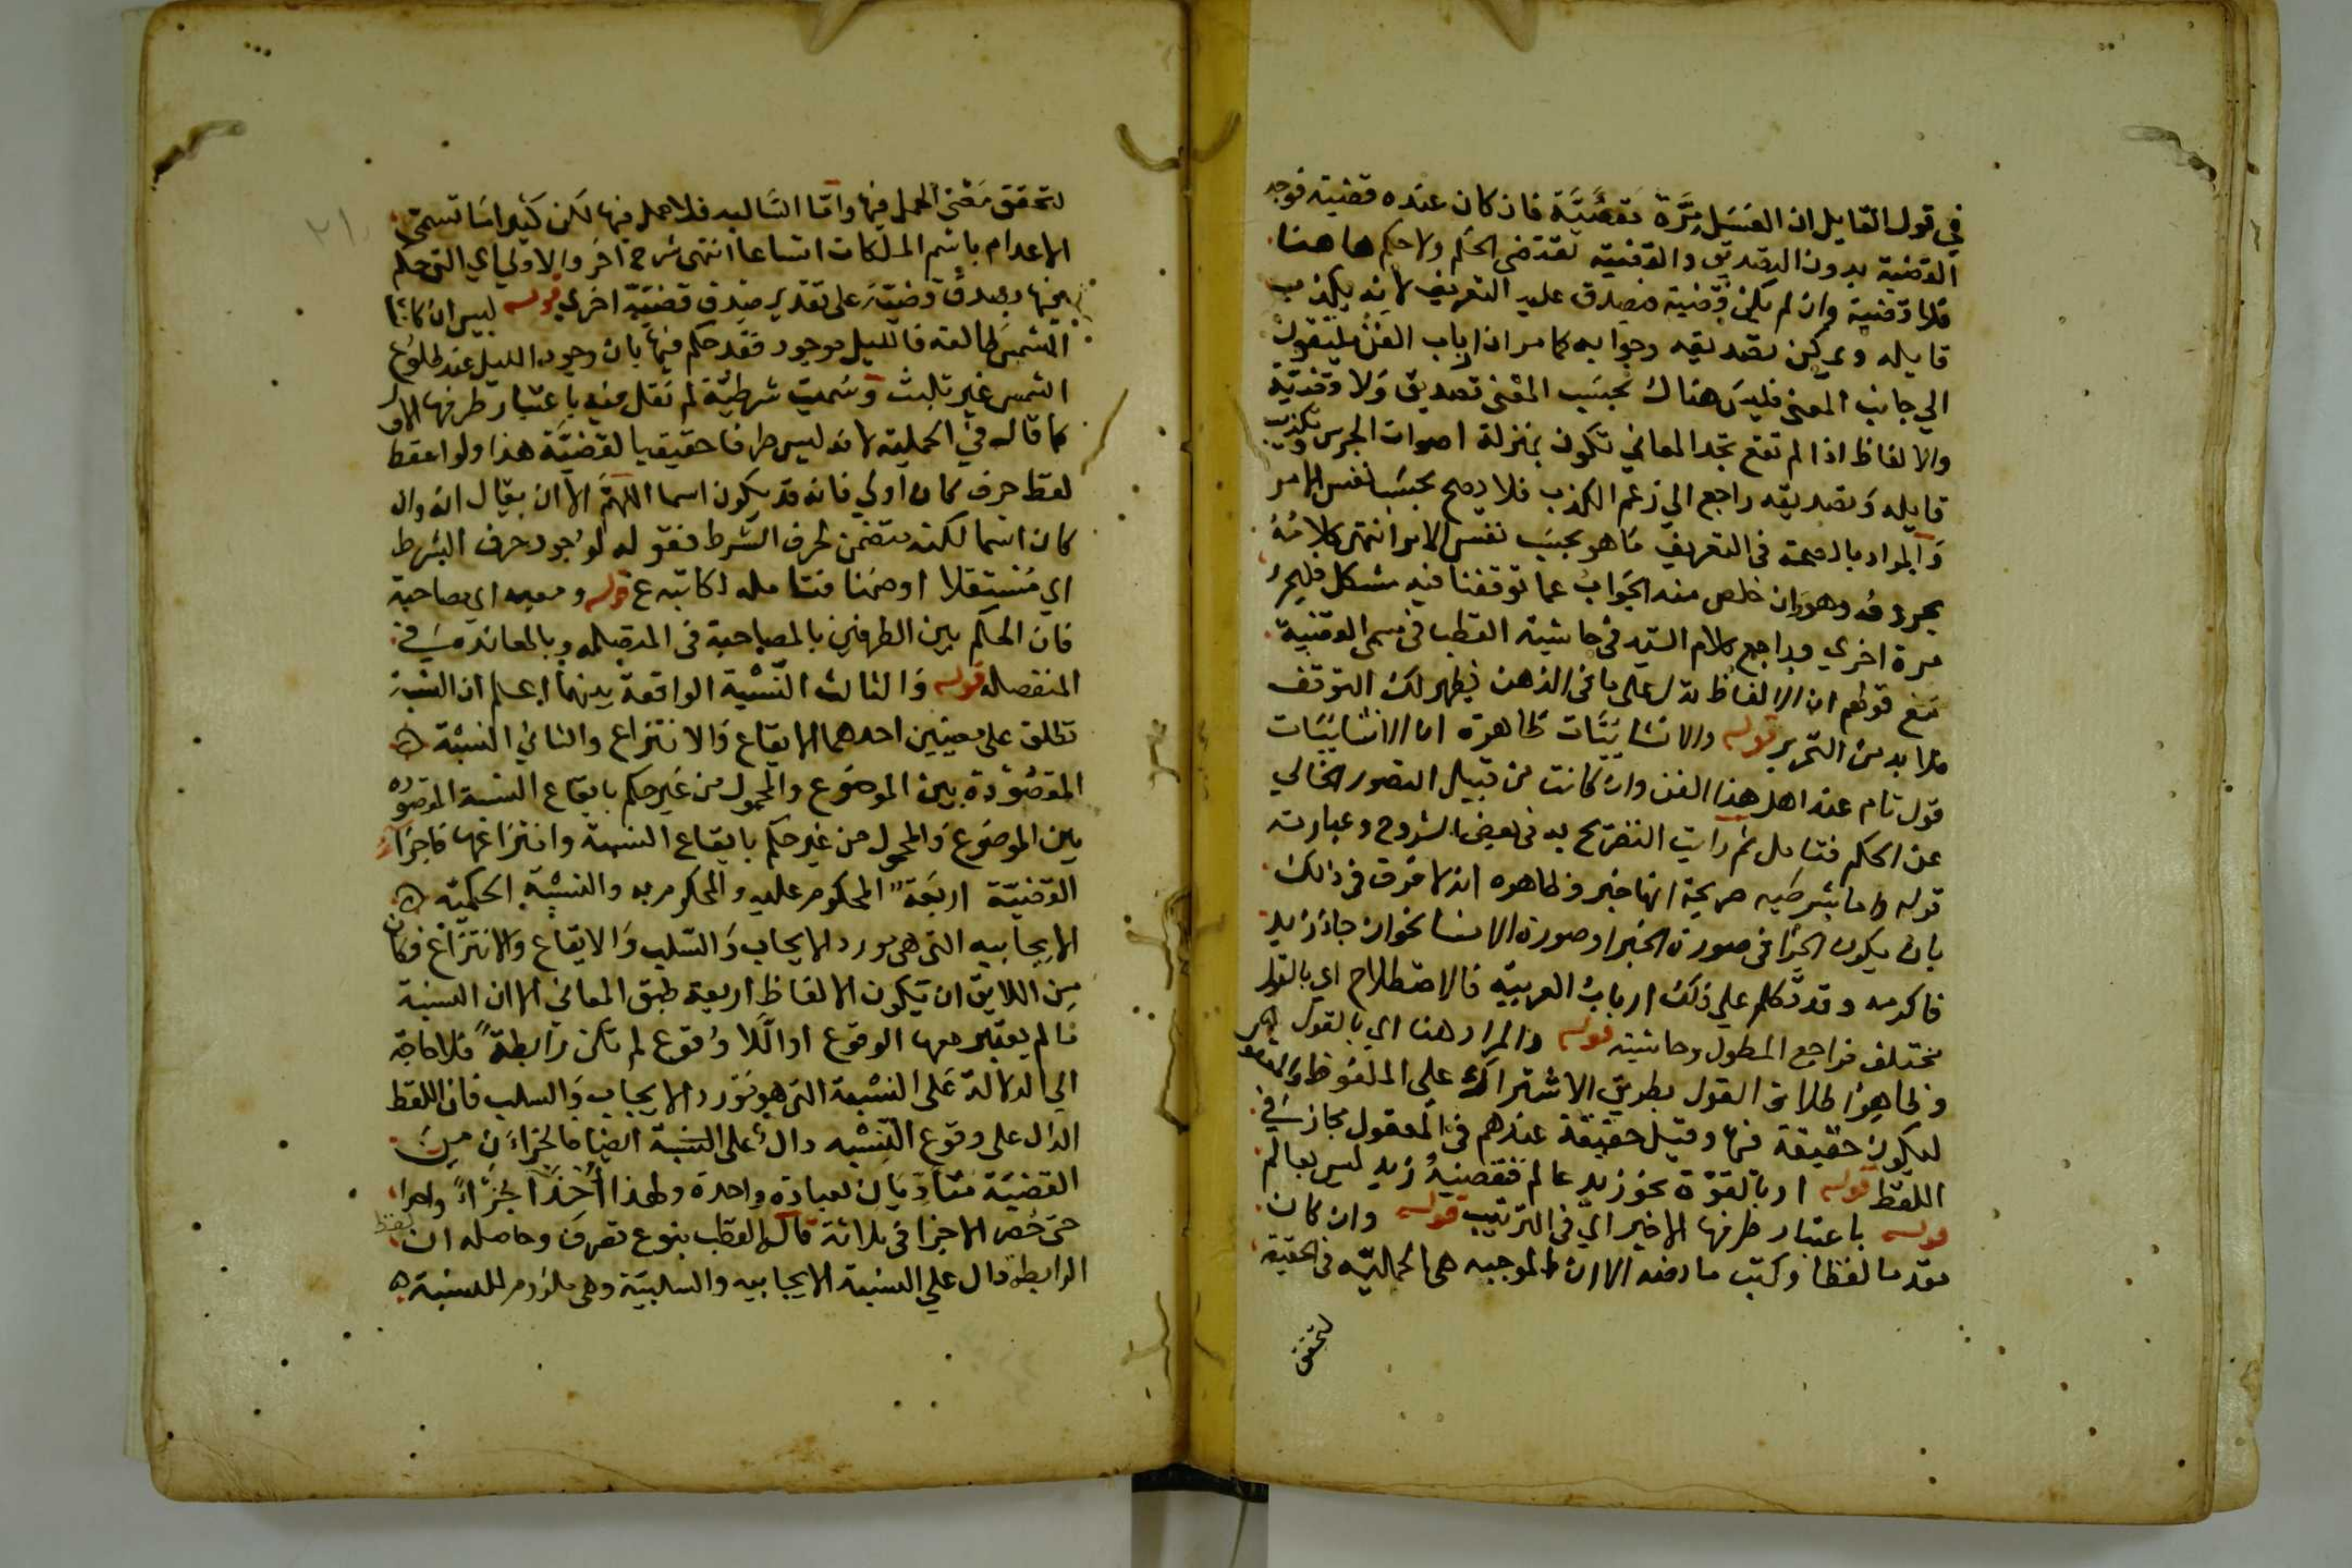 في قول القايل ان العسل مرة مقيئة فان كان عنده قضية فوجد
القضية بدون التصديق والقضية تقتضي الحكم ولا حكم هاهنا
فلا قضية وان لم يكن قضية فيصدق عليه التعريف لانه يكذب
قايله ويمكن تصديقه وجوابه كما مر ان ارباب الفن يلتفون
الي جانب المعنى فليس هناك بحسب المعنى تصديق ولا قضية
والالفاظ اذا لم تقع تجد المعاني تكون بمنزلة اصوات الجرس وتكذيب
قايله وتصديقه راجع الي زعم الكذب فلا يصح بحسب نفس الامر
والمراد بالصحة في التعريف ما هو بحسب نفس الامر انتهى كلامه
بحروفه وهو وان خلص منه الجواب عما توقفنا فيه مشكل فليحرر
مرة اخري وراجع كلام السيد في حاشية القطب في مسمى القضية
مع قولهم ان الالفاظ تدل على ما في الذهن فيظهر لك التوقف
فلا بد من التحرير قوله والانشائيات ظاهره ان الانشائيات
قول تام عند اهل هذا الفن وان كانت من قبيل التصور الخالي
عن الحكم فتامل ثم رايت التصريح به في بعض الشروح وعبارته
قوله واما بشرطيه صريحة انها خبر وظاهره انه لا فرق في ذلك
بان يكون الجزا في صورة الخبر او صورة الانشا نحو ان جاء زيد
فاكرمه وقد تكلم علي ذلك ارباب العربية فالاصطلاح اي بالقول
مختلف فراجع المطول وحاشيته قوله والمراد هنا اي بالقول
وظاهره اطلاق القول بطريق الاشتراك على الملفوظ والمعقول
ليكون حقيقة فيها وقيل حقيقة عندهم في المعقول مجاز في
اللفظ قوله او بالقوة نحو زيد عالم نقضية زيد ليس بعالم
قوله باعتبار طرفها الاخير اي في الترتيب قوله وان كان
مقدما لفظا وكتب ما رضه الا ان الموجبه هي الحملية في الحقيقة
لتحقق
لتحقق معنى الحمل فيها واما السالبه فلا حمل فيها لكن كثيرا ما تسمى
الاعدام باسم الملكات اتساعا انتهى شرح اخر والاولي اي التي حكم
فيها بصدق قضية على تقدير صدق قضية اخري قوله ليس ان كانت
الشمس طالعة فالليل موجود فقد حكم فيها بان وجود الليل عند طلوع
الشمس غير ثابت وسميت شرطية لم نقل فيه باعتبار طرفها الاول
كما قاله في الحملية لانه ليس طرفا حقيقيا لقضية هذا ولو اسقط
لفظ حرف كان اولي فانه قد يكون اسما اللهم الا ان يقال انه وان
كان اسما لكنه متضمن لحرف الشرط فقوله لوجود حرف الشرط
اي مستقلا او ضمنا فتامله لكاتبه ع قوله ومعيه اي مصاحبة
فان الحكم بين الطرفين بالمصاحبة في المتصله وبالمعاندة في
المنفصله قوله والثالث النسبة الواقعة بينهما اعلم ان النسبة
تطلق على معنيين احدهما الايقاع والانتزاع والثاني النسبة
المقصودة بين الموضوع والمحمول من غير حكم بايقاع النسبة المقصوده
بين الموضوع والمحمول من غير حكم بايقاع النسبة وانتزاعها فاجزاء
القضية اربعة المحكوم عليه والمحكوم به والنسبة الحكمية
الايجابيه التي هي مورد الايجاب والسلب والايقاع والانتزاع فكان
من اللايق ان تكون الالفاظ اربعة طبق المعاني الا ان النسبة
ما لم يعتبر معها الوقوع او اللا وقوع لم تكن رابطة فلا حاجة
الي الدلالة على النسبة التي هو مورد الايجاب والسلب فان اللفظ
الدال على وقوع النسبه دال على النسبة ايضا فالجزاءن من
القضية متاديان لعبارة واحدة ولهذا اخذا جزاء واحدا
حتى حصر الاجزا في ثلاثة قال القطب بنوع تصرف وحاصله ان لفظ
الرابطه دال علي النسبة الايجابيه والسلبية وهي ملزوم للنسبة